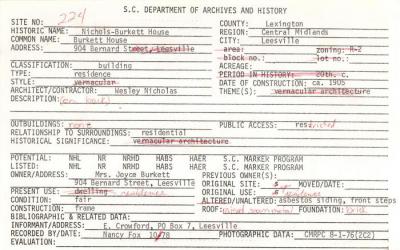 S.C. DEPARTMENT OF ARCHIVES AND HISTORY
SITE NO.: 224
COUNTY: Lexington
HISTORIC NAME: Nichols-Burkett House
REGION: Central Midlands
COMMON NAME: Burkett House
CITY: Leesville
ADDRESS: 904 Bernard Street, Leesville
area: zoning: R-2
block no.: lot no.:
CLASSIFICATION: building
ACREAGE:
TYPE: residence
PERIOD IN HISTORY: 20th. c.
STYLE: vernacular
DATE OF CONSTRUCTION: ca. 1905
ARCHITECT/CONTRACTOR: Wesley Nicholas
THEME(S): vernacular architecture
DESCRIPTION: (on back)
OUTBUILDINGS: none
PUBLIC ACCESS: restricted
RELATIONSHIP TO SURROUNDINGS: residential
HISTORICAL SIGNIFICANCE: vernacular architecture
POTENTIAL: NHL NR NRHD HABS HAER S.C. MARKER PROGRAM
LISTED: NHL NR NRHD HABS HAER S.C. MARKER PROGRAM
OWNER/ADDRESS: Mrs. Joyce Burkett
PREVIOUS OWNER(S):
904 Bernard Street, Leesville
ORIGINAL SITE: MOVED/DATE:
PRESENT USE: dwelling residence
ORIGINAL USE: residence
CONDITION: fair
ALTERED/UNALTERED: asbestos siding, front steps
CONSTRUCTION: frame
ROOF: FOUNDATION: brick
BIBLIOGRAPHIC & RELATED DATA:
INFORMANT/ADDRESS: E. Crowford, PO Box 7, Leesville
RECORDED BY/DATE: Nancy Fox 10/78
PHOTOGRAPHIC DATA: CMRPC 8-1-76(2C2)